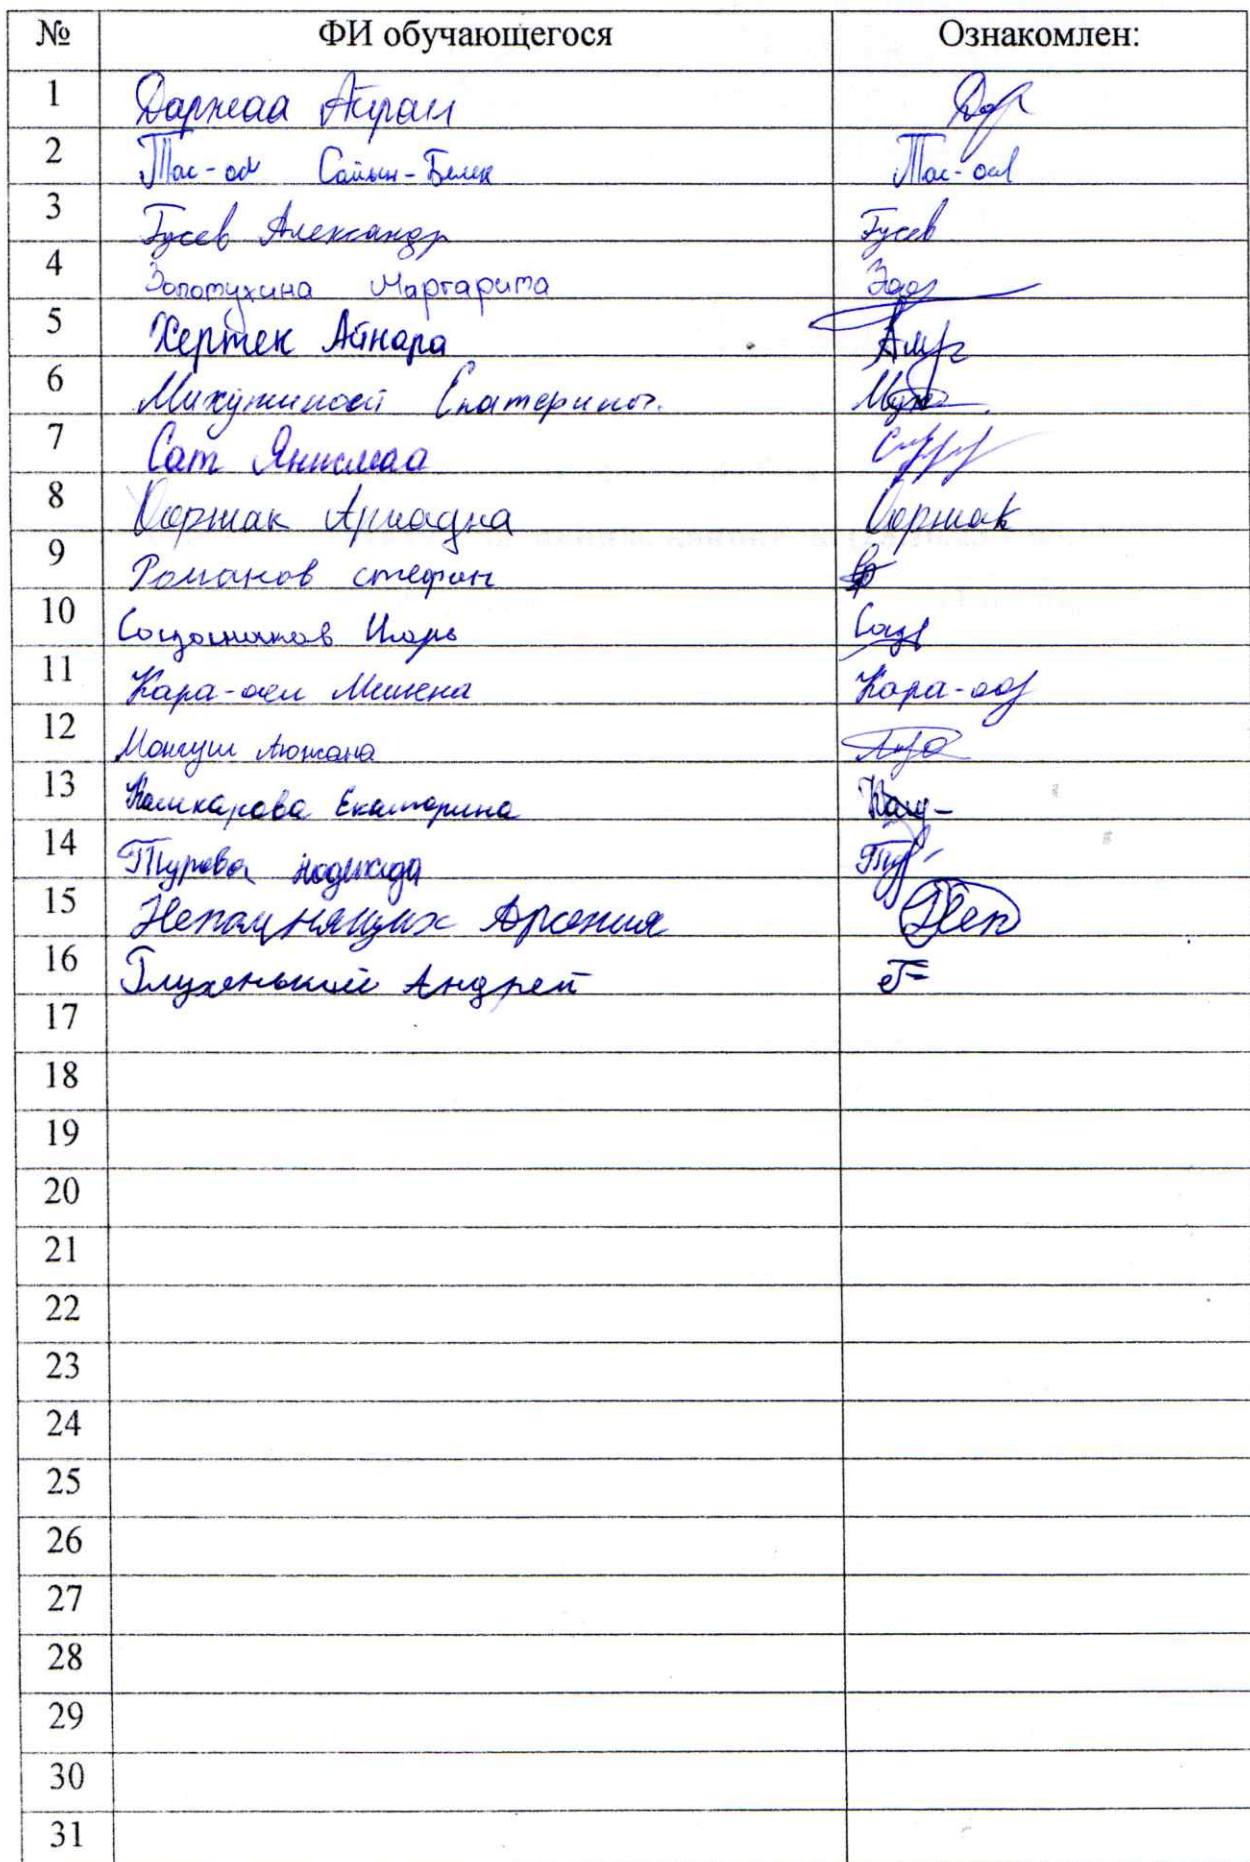 № ФИ обучающегося Ознакомлен:
1 Даржаа Айран
2 Тас-оол Сайын-Белек Тас-оол
3 Гусев Александр Гусев
4 Золотухина Маргарита
5 Хертек Айнара
6 Екатерины
7 Сат
8 Ооржак Ариадна Ооржак
9 Романов стефан
10 Игорь
11 Кара-оол Кара-оол
12 Монгуш
13 Кашкарова Екатерина Каш-
14 Турова надежда Тур
15 Непомнящих Арсения Неп
16 Глухенький Андрей Г
17
18
19
20
21
22
23
24
25
26
27
28
29
30
31